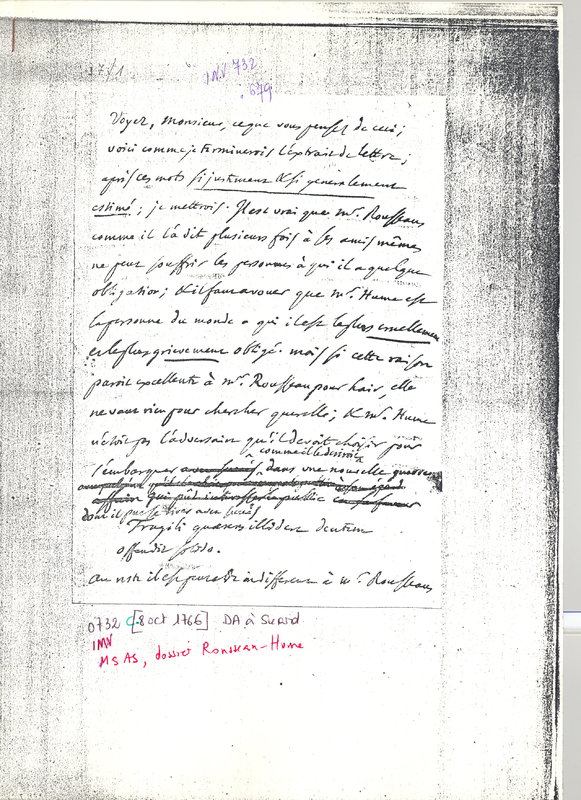 17/1
INV 732
. 679
Voyez, Monsieur, ce que vous pensez de ceci ;
voici comme je terminerois l'extrait de lettre ;
après ces mots si justement & si généralement
estimé ; je mettrois. Il est vrai que Mr. Rousseau
comme il l'a dit plusieurs fois à ses amis mêmes
ne peut souffrir les personnes à qui il a quelque
obligation ; & il faut avouer que Mr. Hume est
la personne du monde a qui il est le plus cruellement
et le plus grievement obligé. mais si cette raison
paroit excellente à Mr. Rousseau pour hair, elle
ne vaut rien pour chercher querelle ; & Mr. Hume
n'étoit pas l'adversaire qu'il devoit choisir pour
comme il le desiroit
s'embarquer dans une nouvelle guerre
qui pût interesser le public
dont il put se tirer avec succès
Fragili quaerens illidere dentem
offendit solido.
au reste il est peut être indifférent à Mr. Rousseau
0732 C [8 oct 1766] DA à Suard
IMV
MS AS, dossier Rousseau-Hume